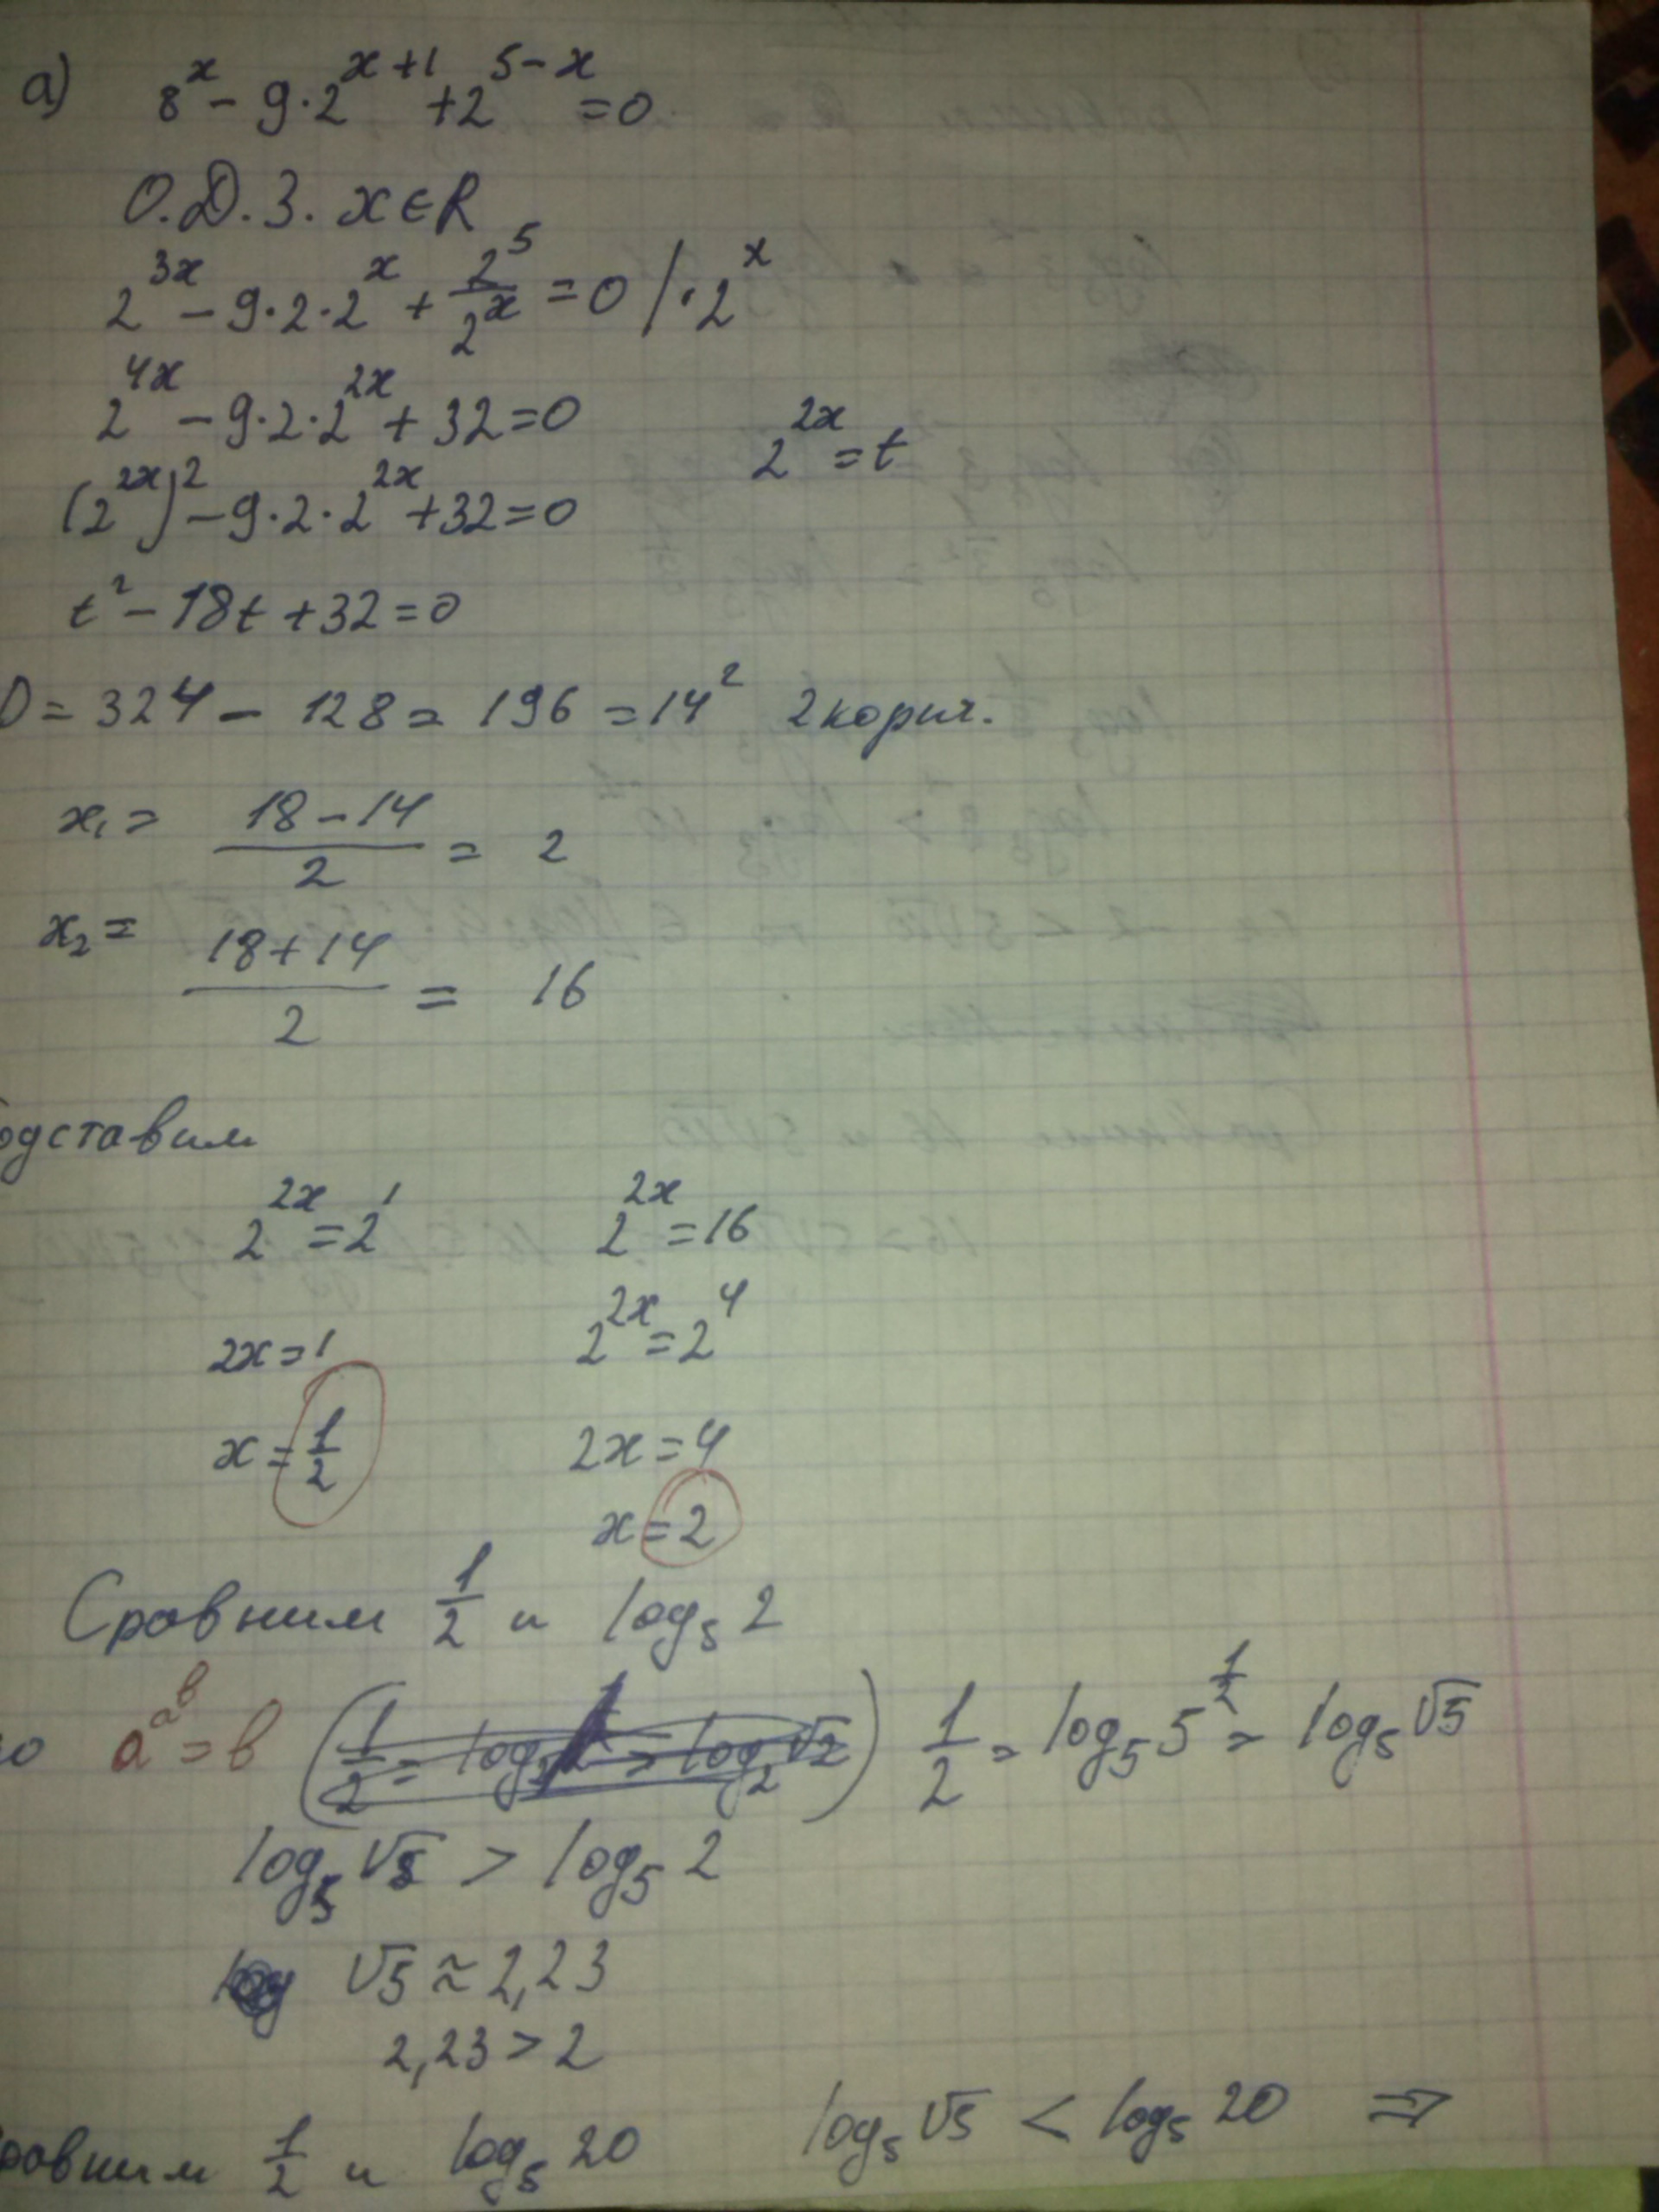 а) 8^x - 9·2^(x+1) + 2^(5-x) = 0
О.Д.З. x∈R
2^(3x) - 9·2·2^x + 2^5/2^x = 0 /·2^x
2^(4x) - 9·2·2^(2x) + 32 = 0
2^(2x) = t
(2^(2x))^2 - 9·2·2^(2x) + 32 = 0
t² - 18t + 32 = 0
D = 324 - 128 = 196 = 14² 2 корня.
x₁ = (18-14)/2 = 2
x₂ = (18+14)/2 = 16
одставим
2^(2x) = 2^1 2^(2x) = 16
2^(2x) = 2^4
2x = 1
x = 1/2 2x = 4
x = 2
Сравним 1/2 и log₅ 2
a^a^b = b 1/2 = log₅ 5^(1/2) = log₅ √5
log₅ √5 > log₅ 2
√5 ≈ 2,23
2,23 > 2
равним 1/2 и log₅ 20 log₅ √5 < log₅ 20 ⇒